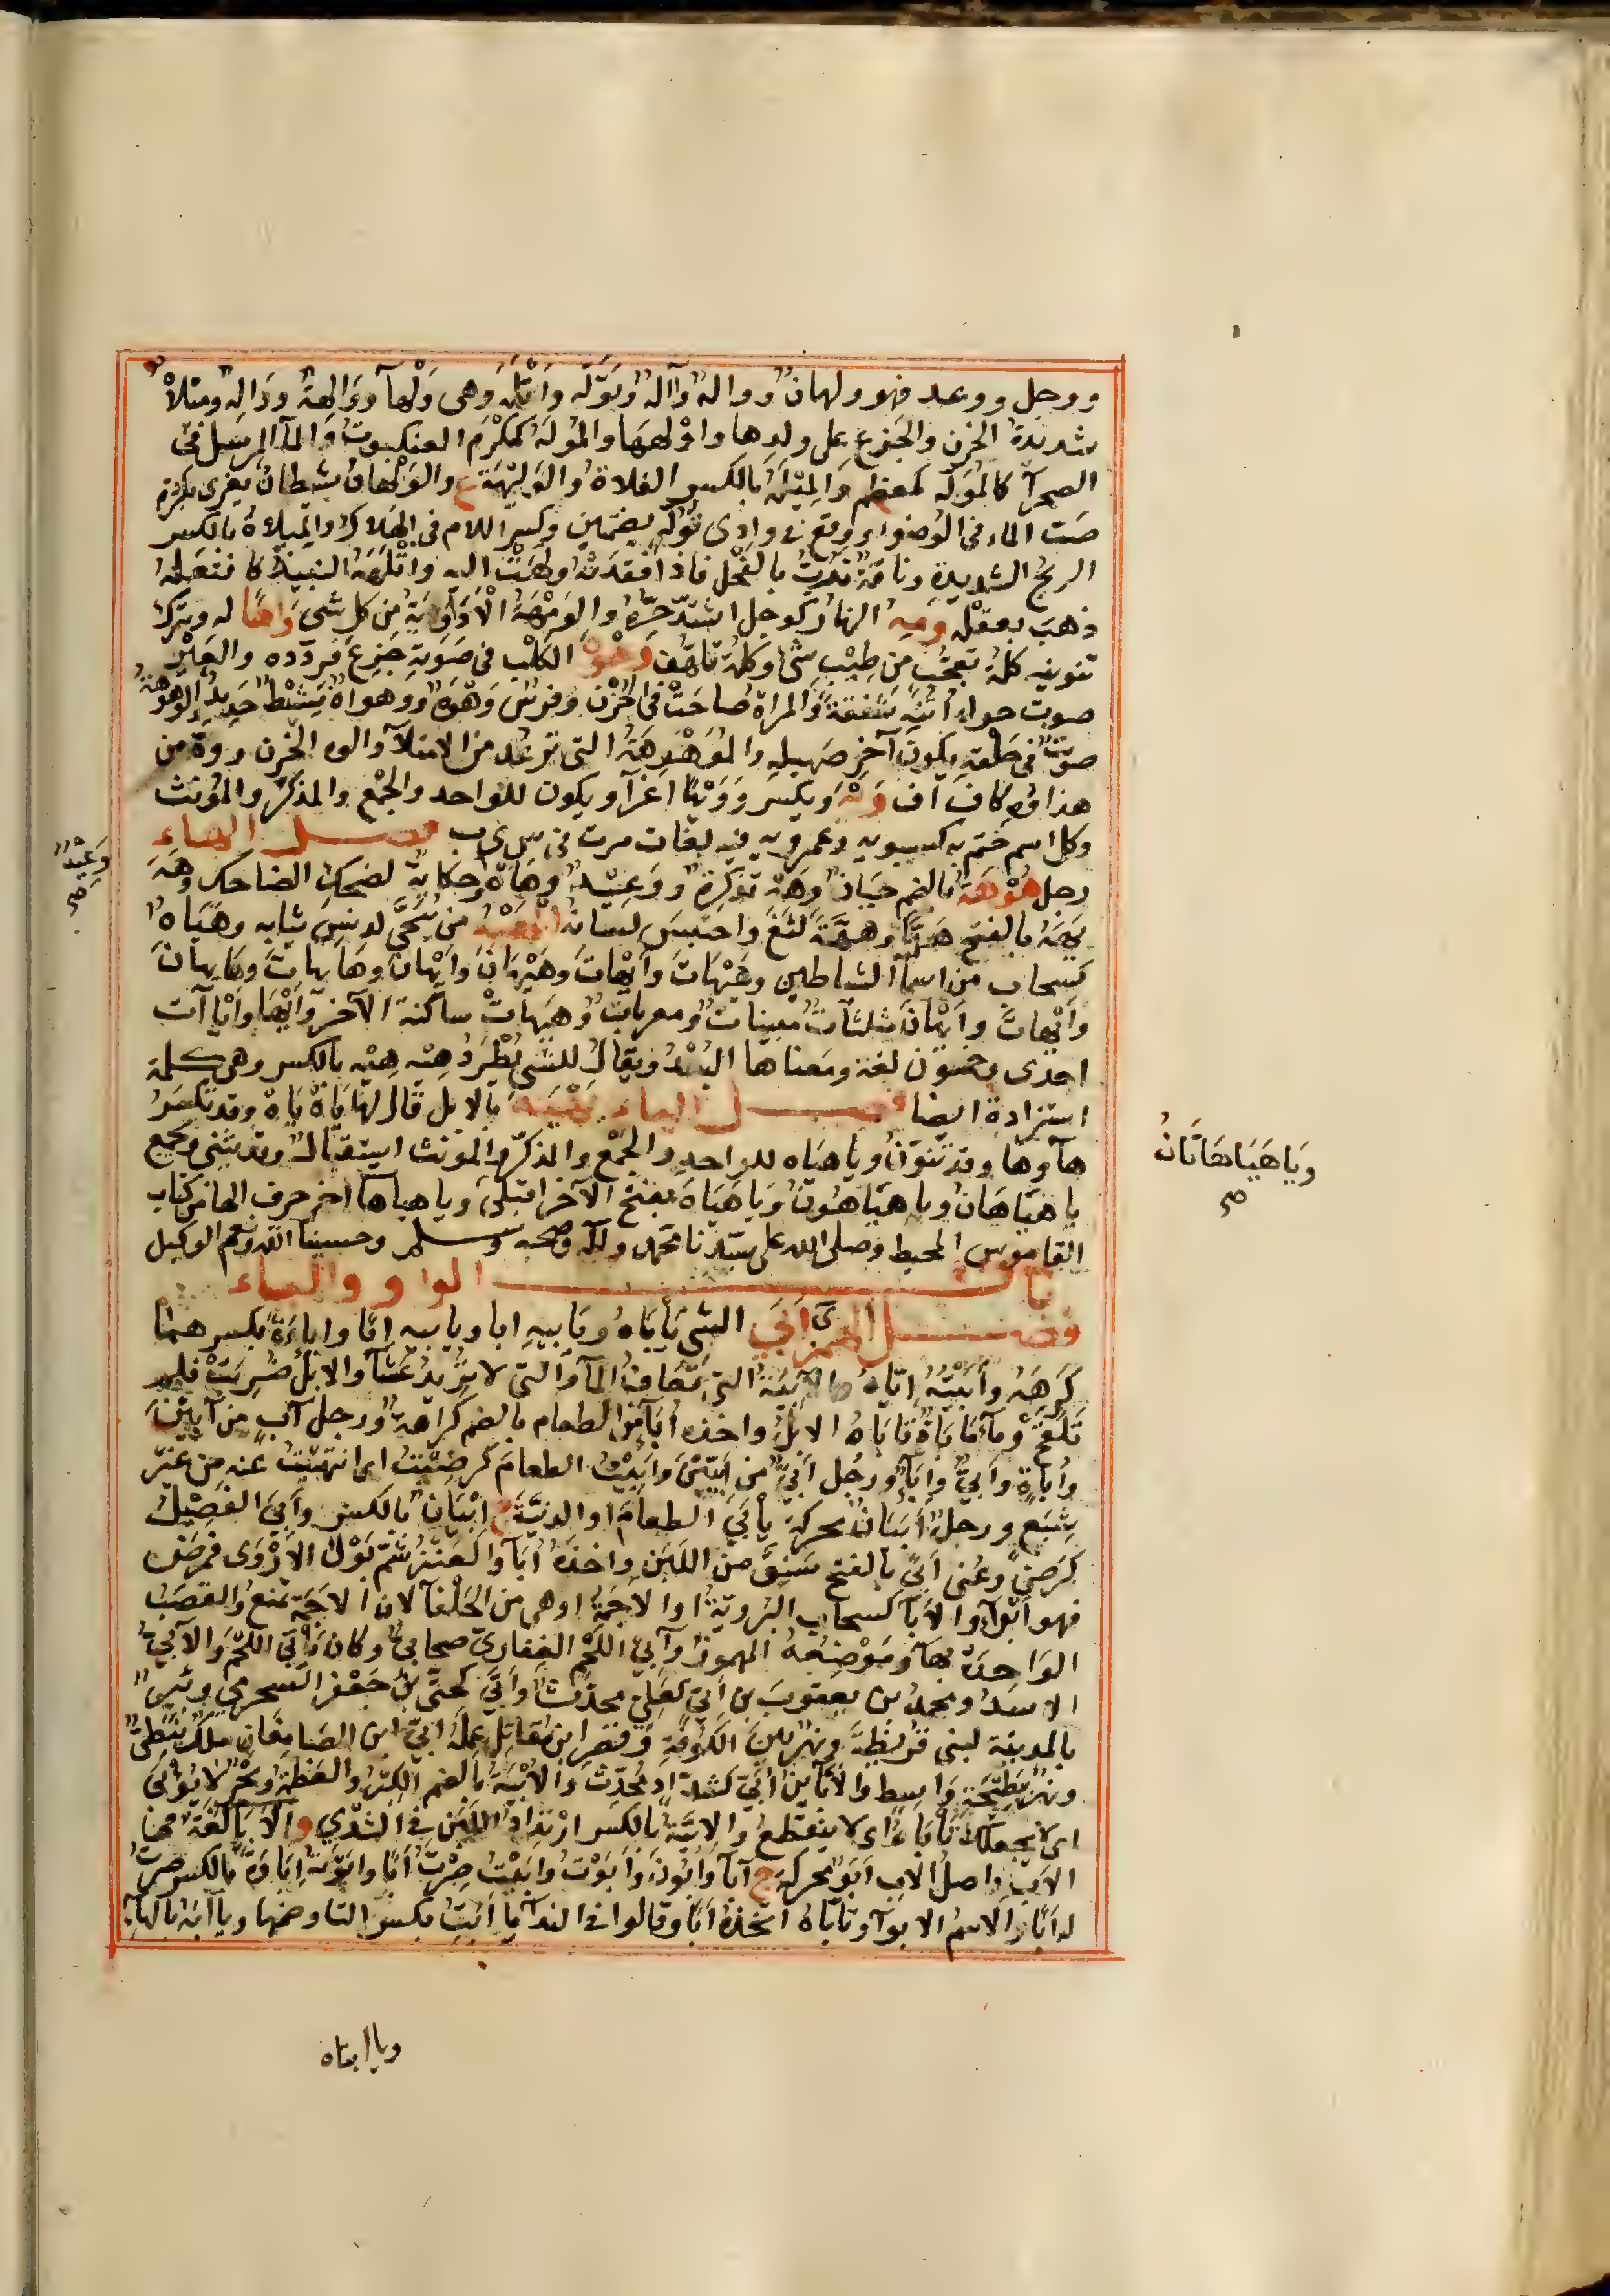 ووجل ووعد فهو ولهان وواله وآله وتوله واتله وهي ولهى ووالهة وواله وميلاه
شديدة الحزن والجزع على ولدها واولهها والموله كمكرم العنكبوت والمآ المرسل في
الصحرآ كالموله كمعظم والميله بالكسر الفلاة والوليهة ع والولهان شيطان يغري بكثرة
صب الماء في الوضوء ووقع في وادى توله بضمتين وكسر اللام في الهلاك والميلاه بالكسر
الريح الشديدة وناقة تربت بالفحل فاذا فقدته ولهت اليه واتلهه النبيذ كافتعله
ذهب بعقله ومه النهار كوجل اشتد حره والومهة الاذوابة من كل شئ واها له ويترك
تنوينه كلمة تعجب من طيب شئ وكلمة تلهف وهوه الكلب في صوته جزع فردده والعير
صوت حول أتنه شفقة والمراة صاحت في الحزن وفرس وهوه ووهواه نشيط حديد والوهوهة
صوت في حلقه يكون آخر صهيله والموهوهة التى ترعد من الامتلآ والوه الحزن ووه من
هذا وه كاف اف ويه ويكسر وويها اغرآ ويكون للواحد والجمع والمذكر والمؤنث
وكل اسم ختم به كسيبويه وعمرويه فيه لغات مرت في س ى ب فصل الهاء
رجل هوهة بالضم جبان وهه تذكرة ووعيد وهاه وحكاية لضحك الضاحك وهه
يهه بالفتح هها وههة لثغ واحتبس لسانه الهيه من ينحى لدنس ثيابه وهياه
كسحاب من اسمآ الشياطين وهيهات وأيهات وهيهان وايهان وهايهات وهايهان
وآيهات وآيهان مثلثات مبنيات ومعربات وهيهات ساكنة الآخر وأيها وأيا آت
احدى وخمسون لغة ومعناها البعد ويقال للشئ يطرد هيه هيه بالكسر وهي كلمة
استزادة ايضا فصل الياء يهيه بالابل قال لها ياه ياه وقد تكسر
هآوها وقد تنون ويا هياه للواحد والجمع والمذكر والمؤنث استقبال وقد يثنى ويجمع
يا هياهان ويا هياهون ويا هياه بفتح الآخر اقبلى ويا هياها اخر حرف الهاء من كتاب
القاموس المحيط وصلى الله على سيدنا محمد وآله وصحبه وسلم وحسبنا الله ونعم الوكيل
باب الواو والياء
فصل الهمزة ى ابى الشئ يأباه ويابيه ابا ويابيه ابا واباءة بكسرهما
كرهه وأبيته اياه والآبية التى تعاف المآ والتى لا تريد عشآ والابل ضربت فلم
تلقح ومآ ماباة تاباه الابل واخذه أبآ من الطعام بالضم كراهة ورجل آب من آبين
وأباة وأبى وابآ ورجل ابى من ابيين وابيت الطعام كرضيت ابا انتهيت عنه من غير
شبع ورجل أبيان محركة يأبى الطعام او الدنية ج ابيان بالكسر وأبى الفصيل
كرضي وعنى ابى بالفتح سنق من اللبن واخذه أبآ والعنز شم بول الاروى فمرض
فهو ابوآ والابآ كسحاب البردية او الاجمة او هي من الحلفآ لان الاجمة تمنع والقصب
الواحدة بهآ وموضعه المهموز وآبى اللحم الغفارى صحابى وكان يأبى اللحم والآبى
الاسد ومحمد بن يعقوب بن ابى كعلى محدث وأبى كحتى بن جعفر النجيرمي وبئر
بالمدينة لبنى قريظة ونهر بين الكوفة وقصر ابن مقاتل عمله ابى ابن الصامغان ملك نبطى
ونهر ببطيحة واسط والابآ بن ابى كشداد محدث والابية بالضم الكبر والعظمة وبحر لا يؤبى
اى لا يجعلك تأباه اى لا ينقطع والابية بالكسر ارتداد اللبن في الثدى والابا لغة في
الاب واصل الاب ابو محركة ج آبآ وابون وأبوت وابيت صرت أبا وابوته اباوة بالكسر صرت
له أبا والاسم الابوآ وتأباه اتخذه أبا وقالوا في الندآ يا أبت بكسر التا وضمها ويا أبه بالهآ
ويا ابتاه
وعيد صح
ويا هياهاتان صح